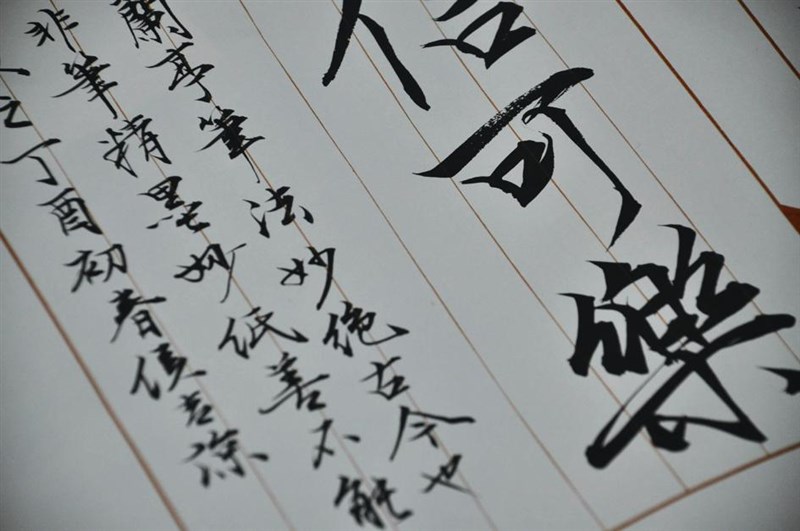 信可樂
蘭亭筆法妙絶古今也
非筆精墨妙紙善不能
之丁酉初春